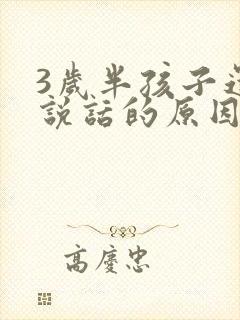 3歲半孩子
說話的原因
高慶忠